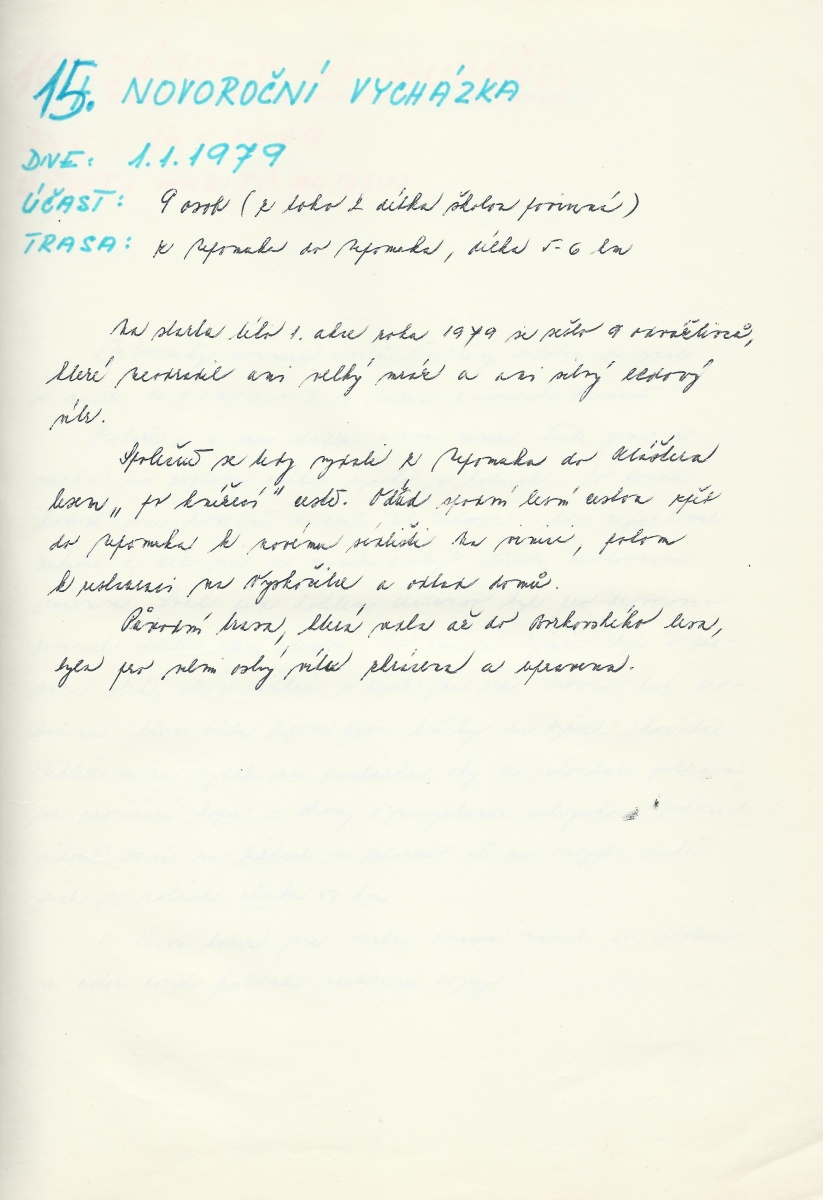 15. NOVOROČNÍ VYCHÁZKA
DNE: 1.1.1979
ÚČAST: 9 osob (z toho 2 dítka školou povinná)
TRASA: z Nepomuka do Nepomuka, délka 5-6 km
Na startu této 1. akce roku 1979 se sešlo 9 odvážlivců,
které neodradil ani velký mráz a ani silný ledový
vítr.
Společně se tedy vydali z Nepomuka do Kláštera
lesem „po kněžecí" cestě. Odtud spodní lesní cestou zpět
do Nepomuka k novému sídlišti Na vinici, potom
k restauraci na Vyskočilce a odtud domů.
Původní trasa, která vedla až do Borkovského lesa,
byla pro velmi ostrý vítr zkrácena a upravena.